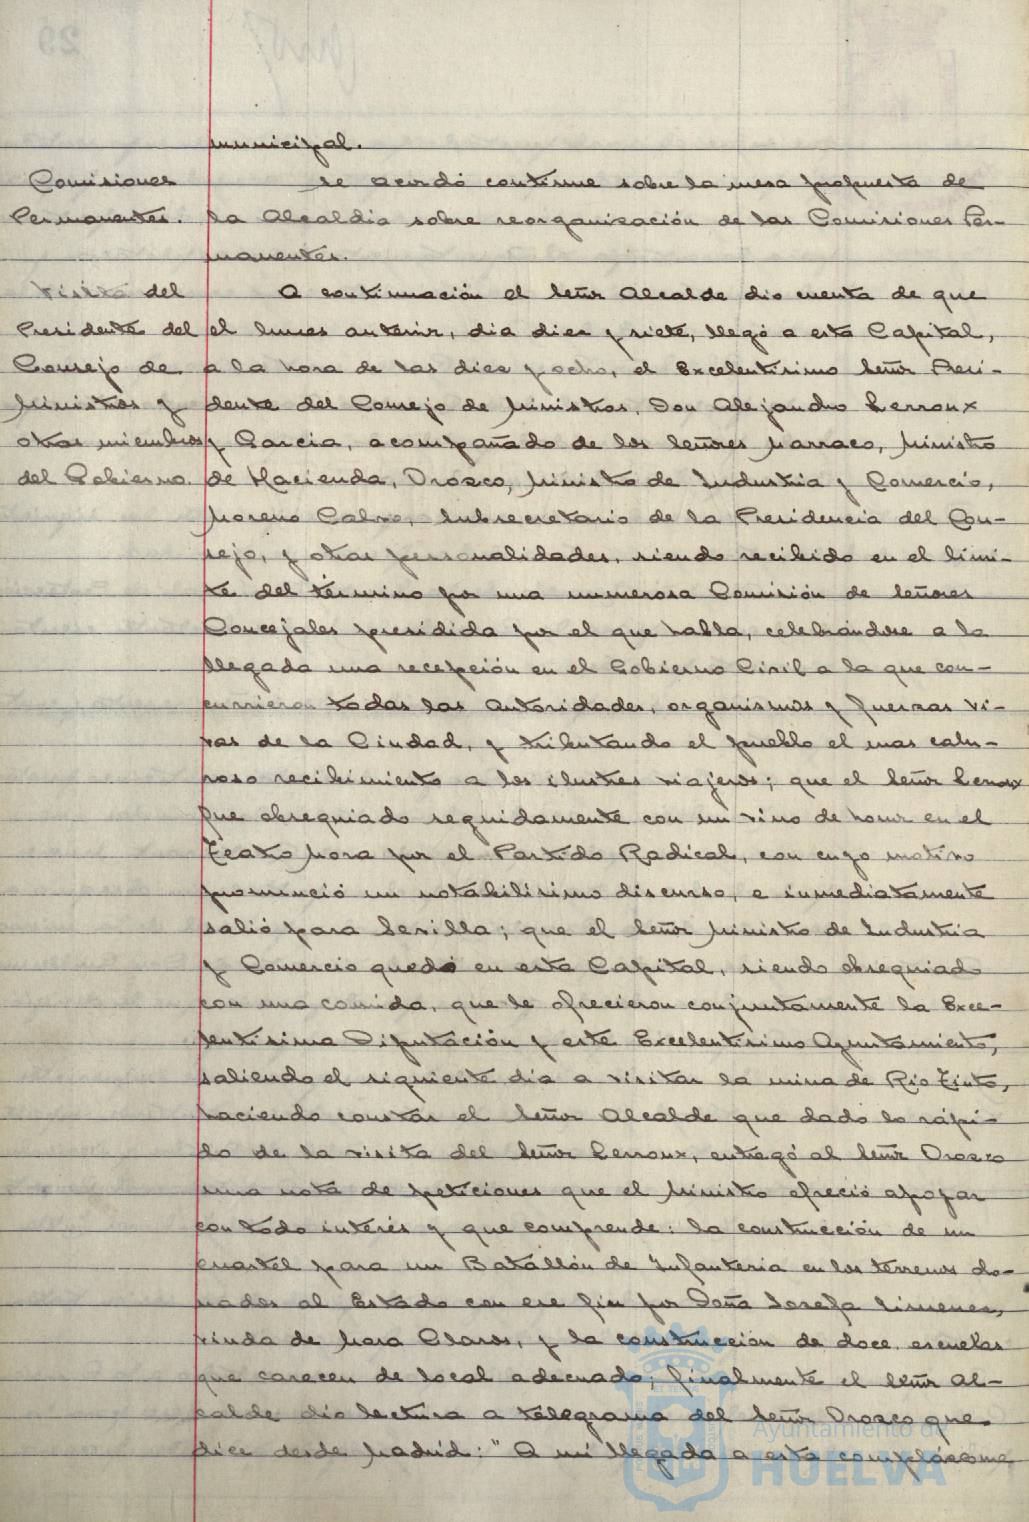 municipal.
Comisiones
Permanentes.
Se acordó continue sobre la mesa propuesta de
la Alcaldia sobre reorganización de las Comisiones Per-
manentes.
Visita del
Presidente del
Consejo de
Ministros y
otros miembros
del Gobierno.
A continuación el Señor Alcalde dio cuenta de que
el lunes anterior, dia diez y siete, llegó a esta Capital,
a la hora de las diez y ocho, el Excelentisimo Señor Presi-
dente del Consejo de Ministros, Don Alejandro Lerroux
y Garcia, acompañado de los Señores Marraco, Ministro
de Hacienda, Orozco, Ministro de Industria y Comercio,
Moreno Calvo, Subsecretario de la Presidencia del Con-
sejo, y otras personalidades, siendo recibido en el limi-
te del término por una numerosa Comisión de Señores
Concejales presidida por el que habla, celebrándose a la
llegada una recepción en el Gobierno Civil a la que con-
currieron todas las autoridades, organismos y fuerzas vi-
vas de la Ciudad, y tributando el pueblo el mas calu-
roso recibimiento a los ilustres viajeros; que el Señor Lerroux
fue obsequiado seguidamente con un vino de honor en el
Teatro Mora por el Partido Radical, con cuyo motivo
pronunció un notabilisimo discurso, e inmediatamente
salió para Sevilla; que el Señor Ministro de Industria
y Comercio quedó en esta Capital, siendo obsequiado
con una comida, que le ofrecieron conjuntamente la Exce-
lentisima Diputación y este Excelentisimo Ayuntamiento,
saliendo el siguiente dia a visitar la mina de Rio Tinto,
haciendo constar el Señor Alcalde que dado lo rápi-
do de la visita del Señor Lerroux, entregó al Señor Orozco
una nota de peticiones que el Ministro ofreció apoyar
con todo interés y que comprende: la construcción de un
cuartel para un Batallón de Infanteria en los terrenos do-
nados al Estado con ese fin por Doña Josefa Jimenez,
viuda de Mora Claros, y la construcción de doce escuelas
que carecen de local adecuado; finalmente el Señor Al-
calde dio lectura a telegrama del Señor Orozco que
dice desde Madrid: "A mi llegada a esta complázcome
Ayuntamiento de
HUELVA